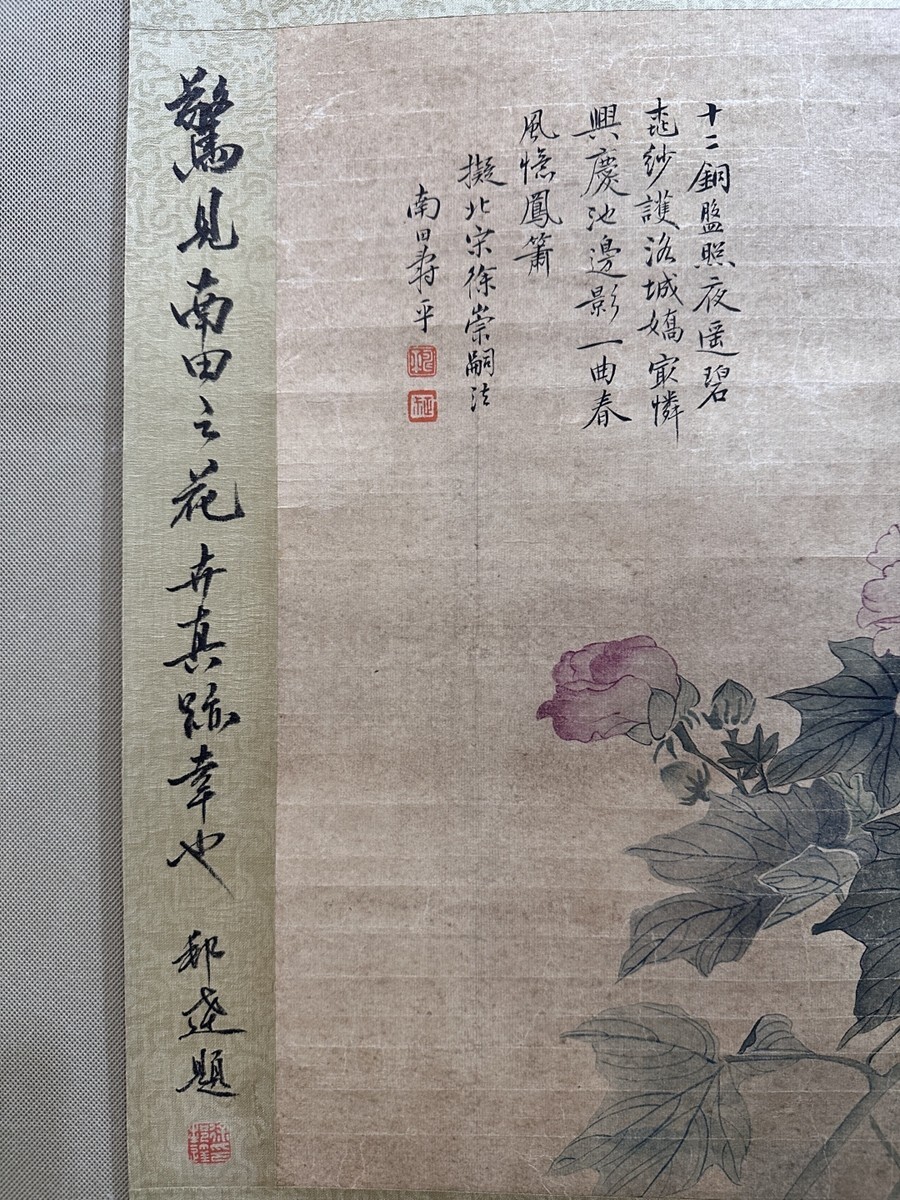 十二銅盤照夜遥碧
桃紗護洛城嬌寂憐
興慶池邊影一曲春
風憶鳳簫
擬北宋徐崇嗣法
南田壽平
驚見南田之花卉真跡幸也
郝逵題